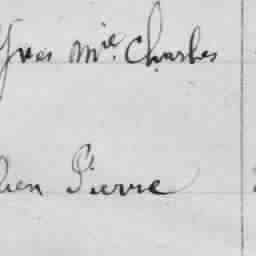 Yves Mie Charles
Pierre